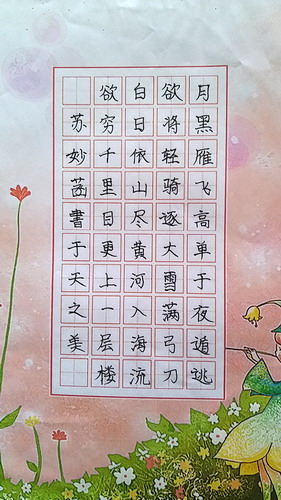 月黑雁飞高单于夜遁逃
欲将轻骑逐大雪满弓刀
白日依山尽黄河入海流
欲穷千里目更上一层楼
苏妙書于天之美